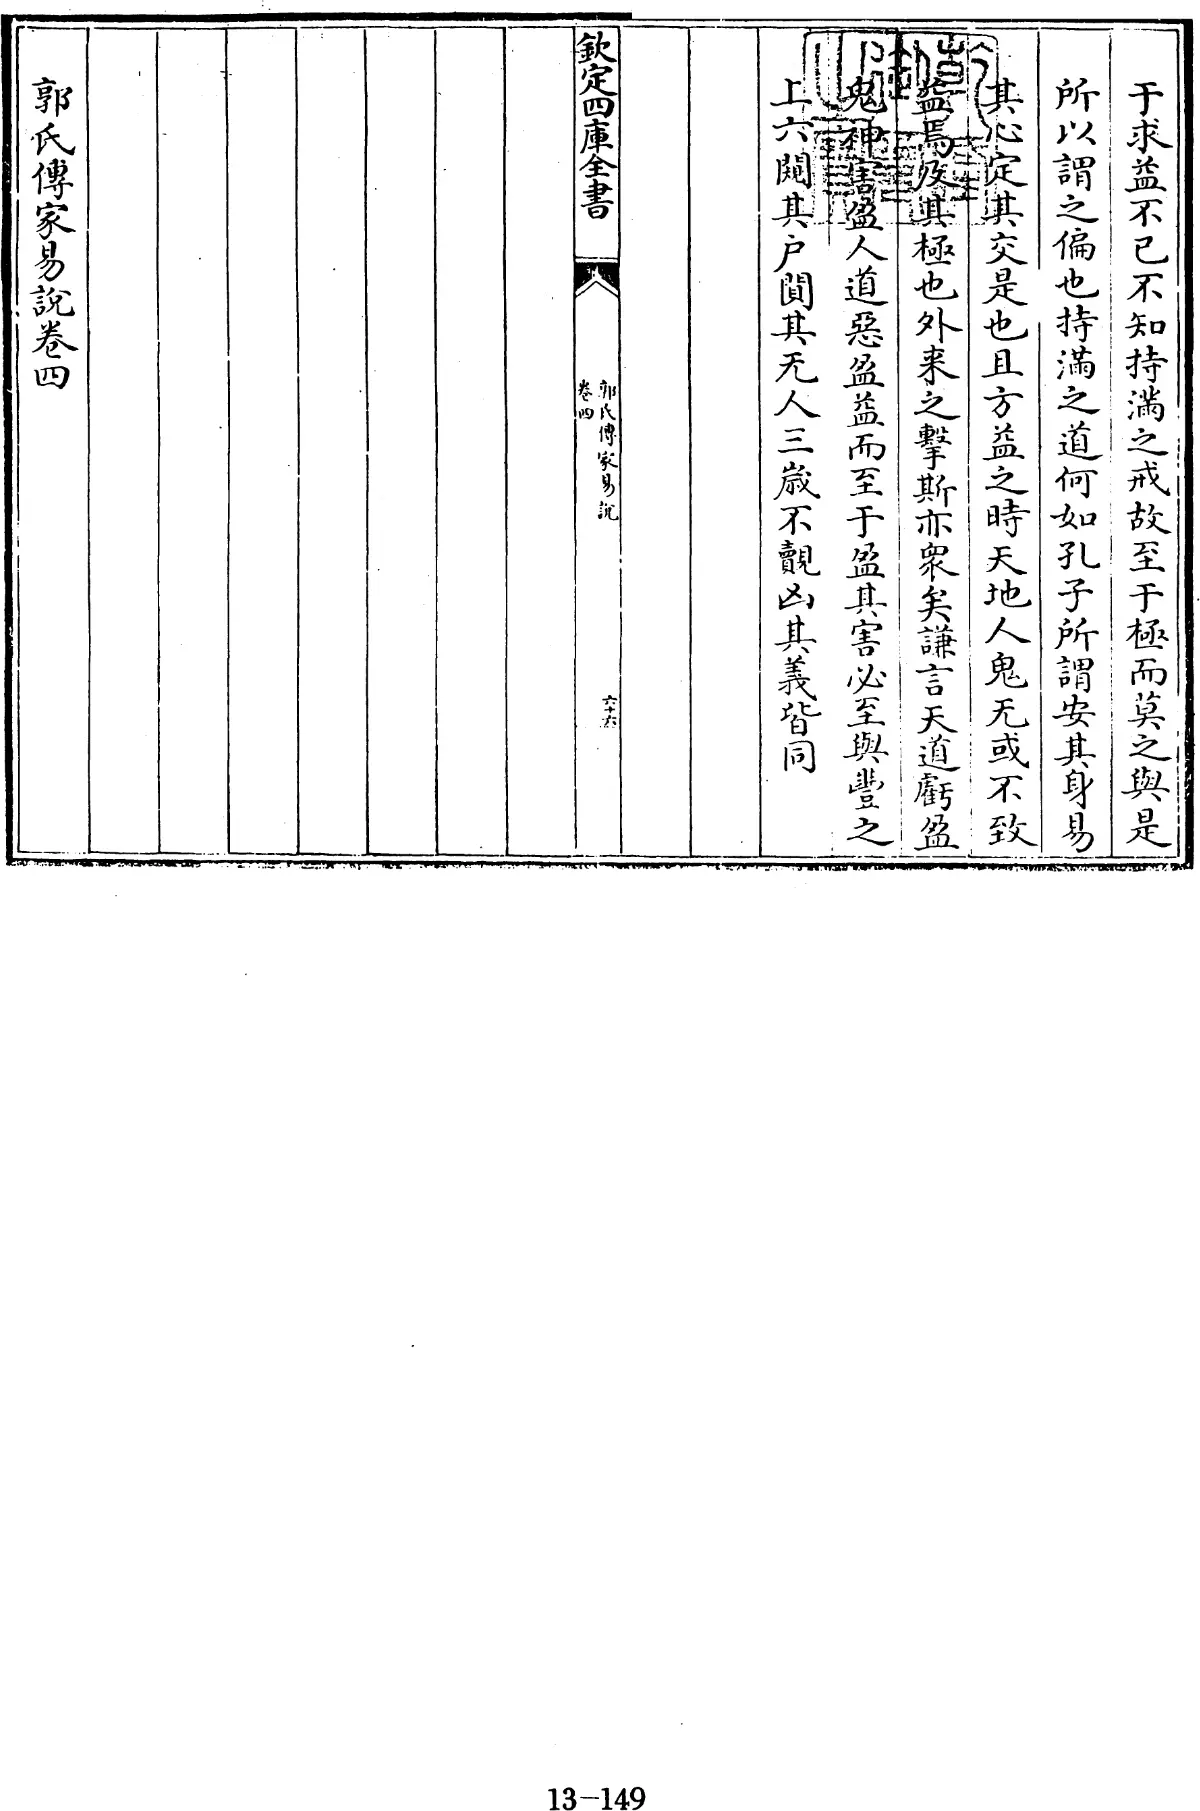 于求益不已不知持滿之戒故至于極而莫之與是
所以謂之偏也持滿之道何如孔子所謂安其身易
其心定其交是也且方益之時天地人鬼无或不致
益焉及其極也外來之擊斯亦衆矣謙言天道虧盈
鬼神害盈人道惡盈益而至于盈其害必至與豐之
上六闚其户闃其无人三歳不覿凶其義皆同
欽定四庫全書
郭氏傳家易說
卷四
六十六
郭氏傳家易說卷四
13-149